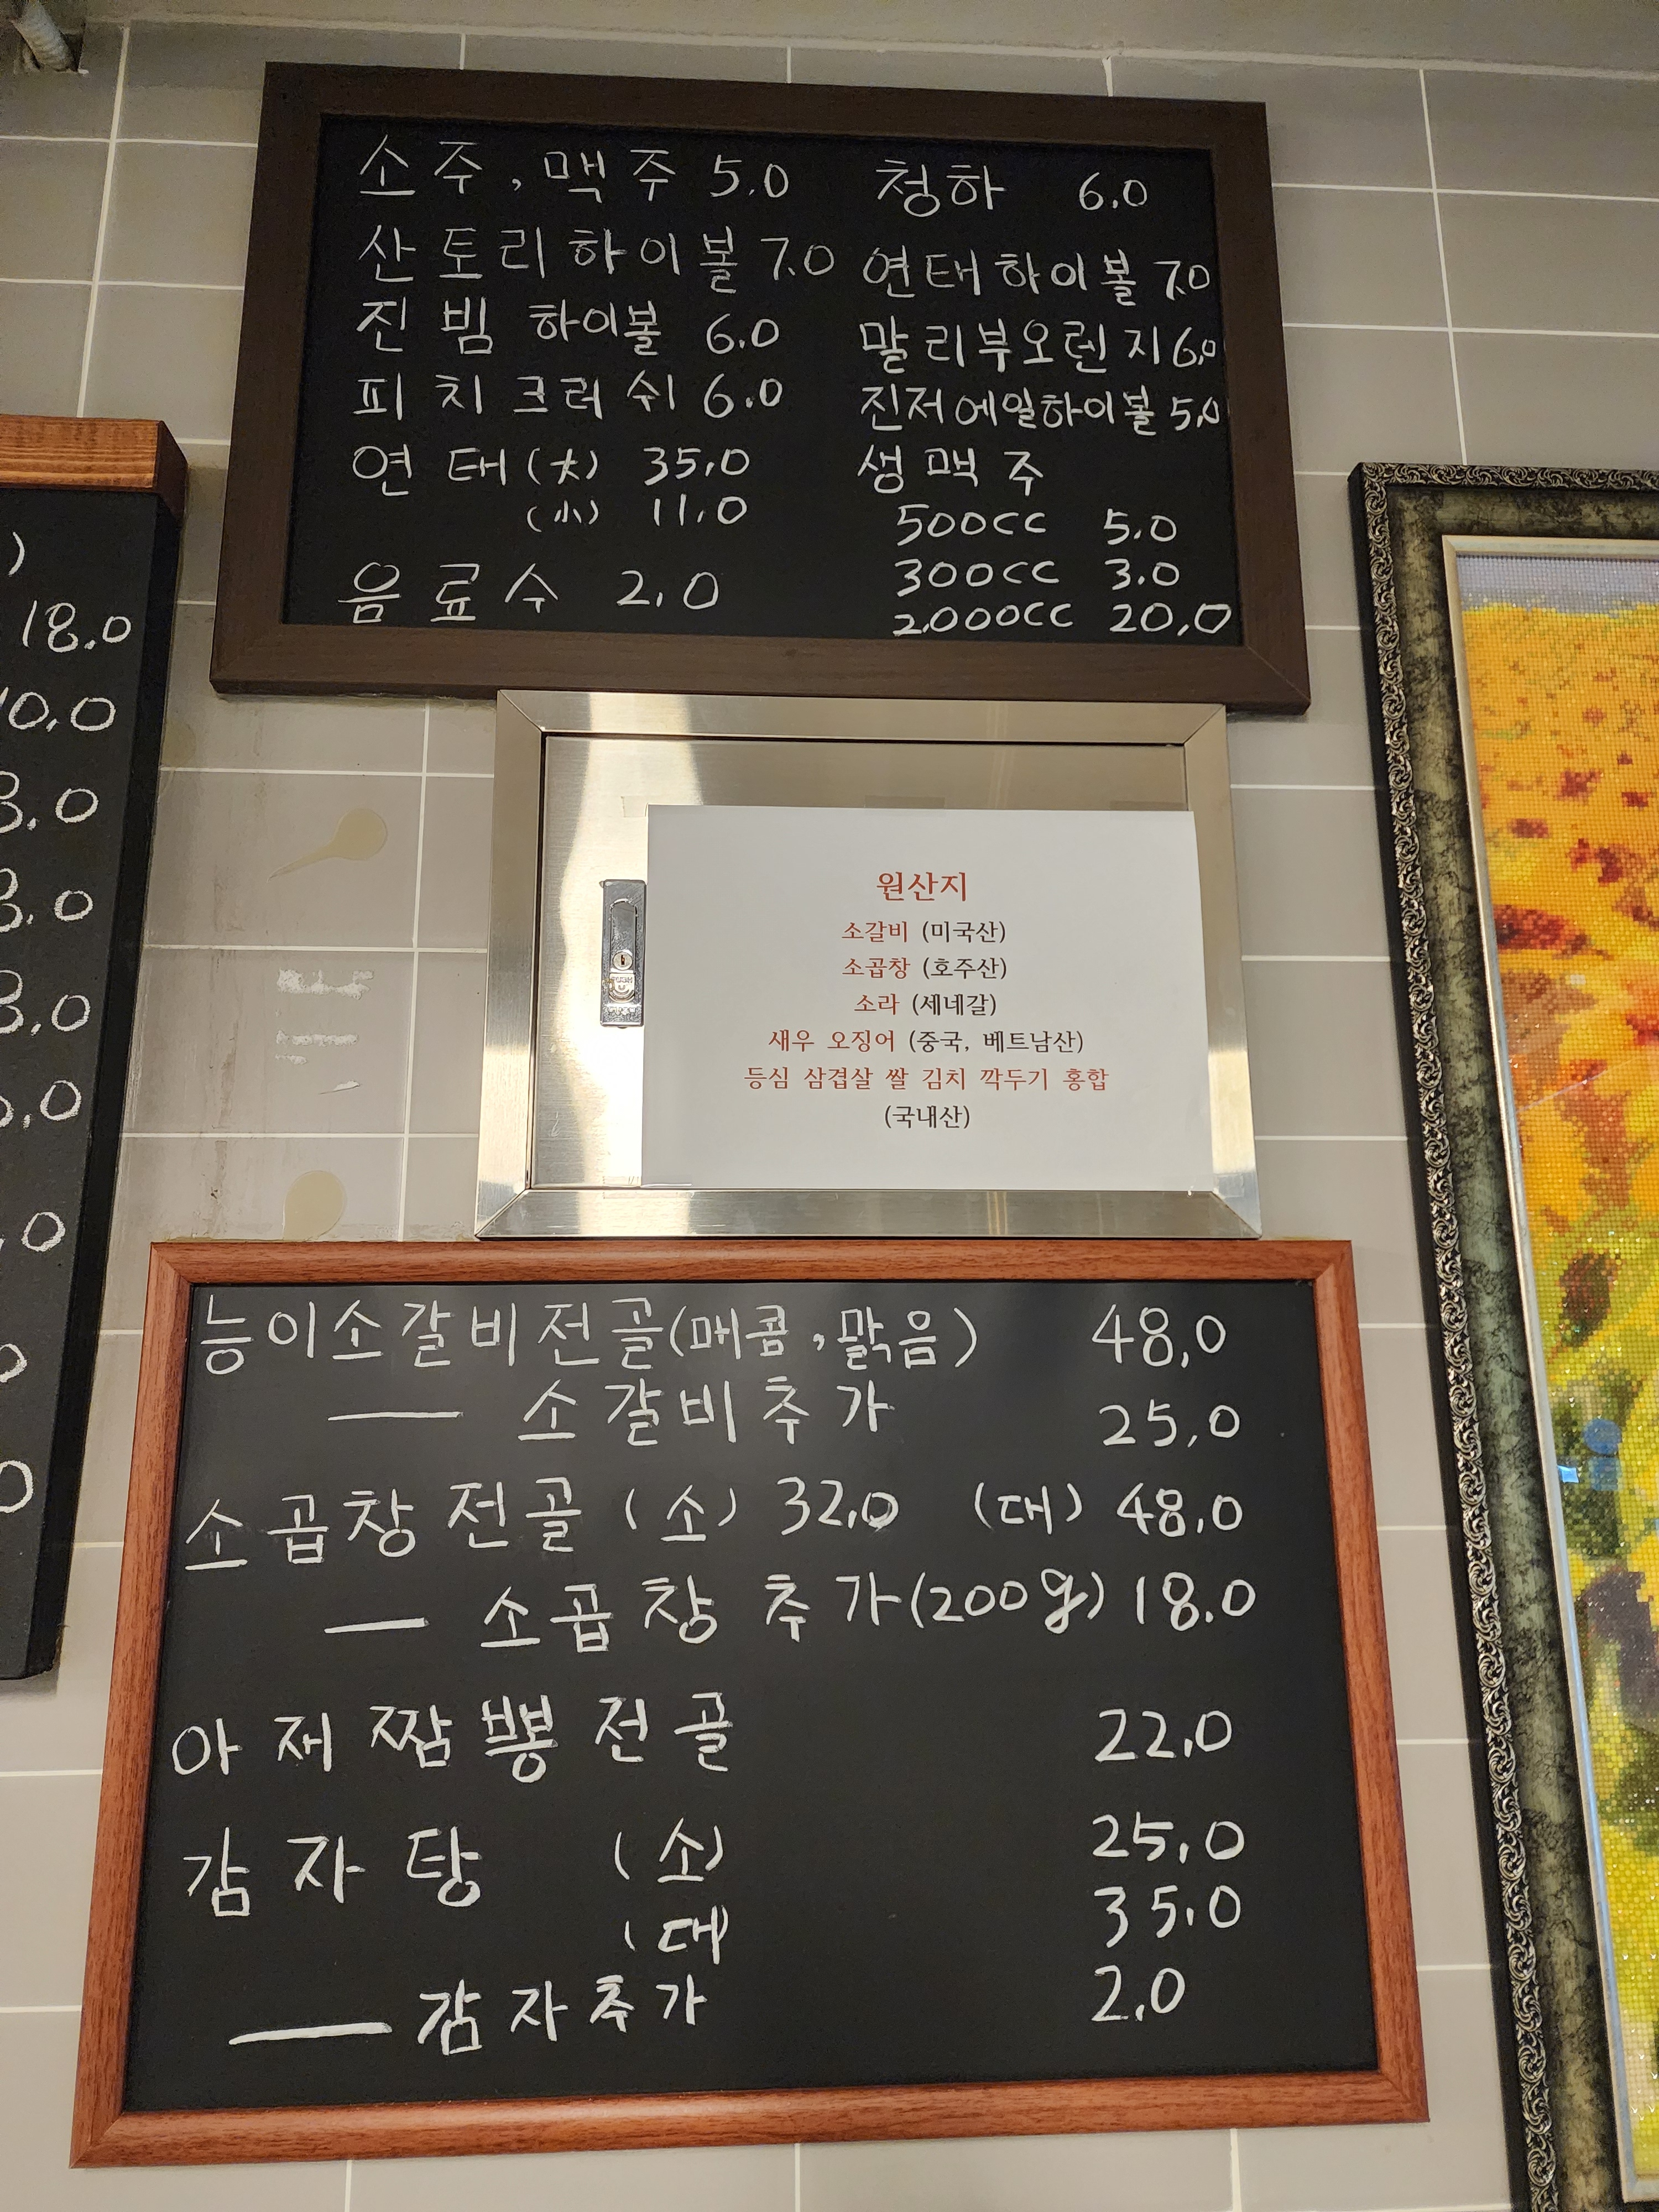 소주, 맥주 5.0
산토리하이볼 7.0
진빔 하이볼 6.0
피치크러쉬 6.0
연태(大) 35.0
(小) 11.0
음료수 2.0
청하 6.0
연태하이볼 7.0
말리부오렌지 6.0
진저에일하이볼 5.0
생맥주
500cc 5.0
300cc 3.0
2.000cc 20.0
)
18.0
10.0
3.0
8.0
8.0
.0
.0
0
0
원산지
소갈비 (미국산)
소곱창 (호주산)
소라 (세네갈)
새우 오징어 (중국, 베트남산)
등심 삼겹살 쌀 김치 깍두기 홍합
(국내산)
능이소갈비전골(매콤, 맑음) 48.0
— 소갈비추가 25.0
소곱창전골 (소) 32.0 (대) 48.0
— 소곱창 추가(200g) 18.0
아재짬뽕전골 22.0
감자탕 (소) 25.0
(대) 35.0
— 감자추가 2.0